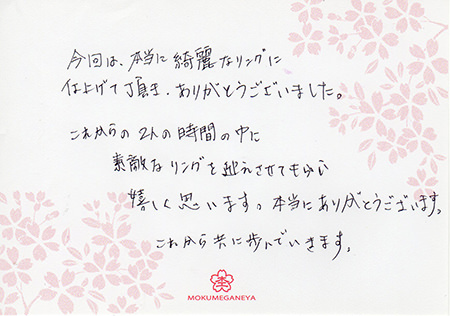 今回は、本当に綺麗なリングに
仕上げて頂き、ありがとうございました。
これからの2人の時間の中に
素敵なリングを迎えさせてもらい
嬉しく思います。本当にありがとうございます。
これから共に歩んでいきます。
MOKUMEGANEYA